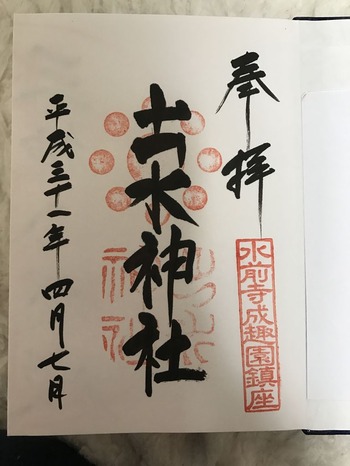 奉拝
水前寺成趣園鎮座
出水神社
平成三十一年四月七日